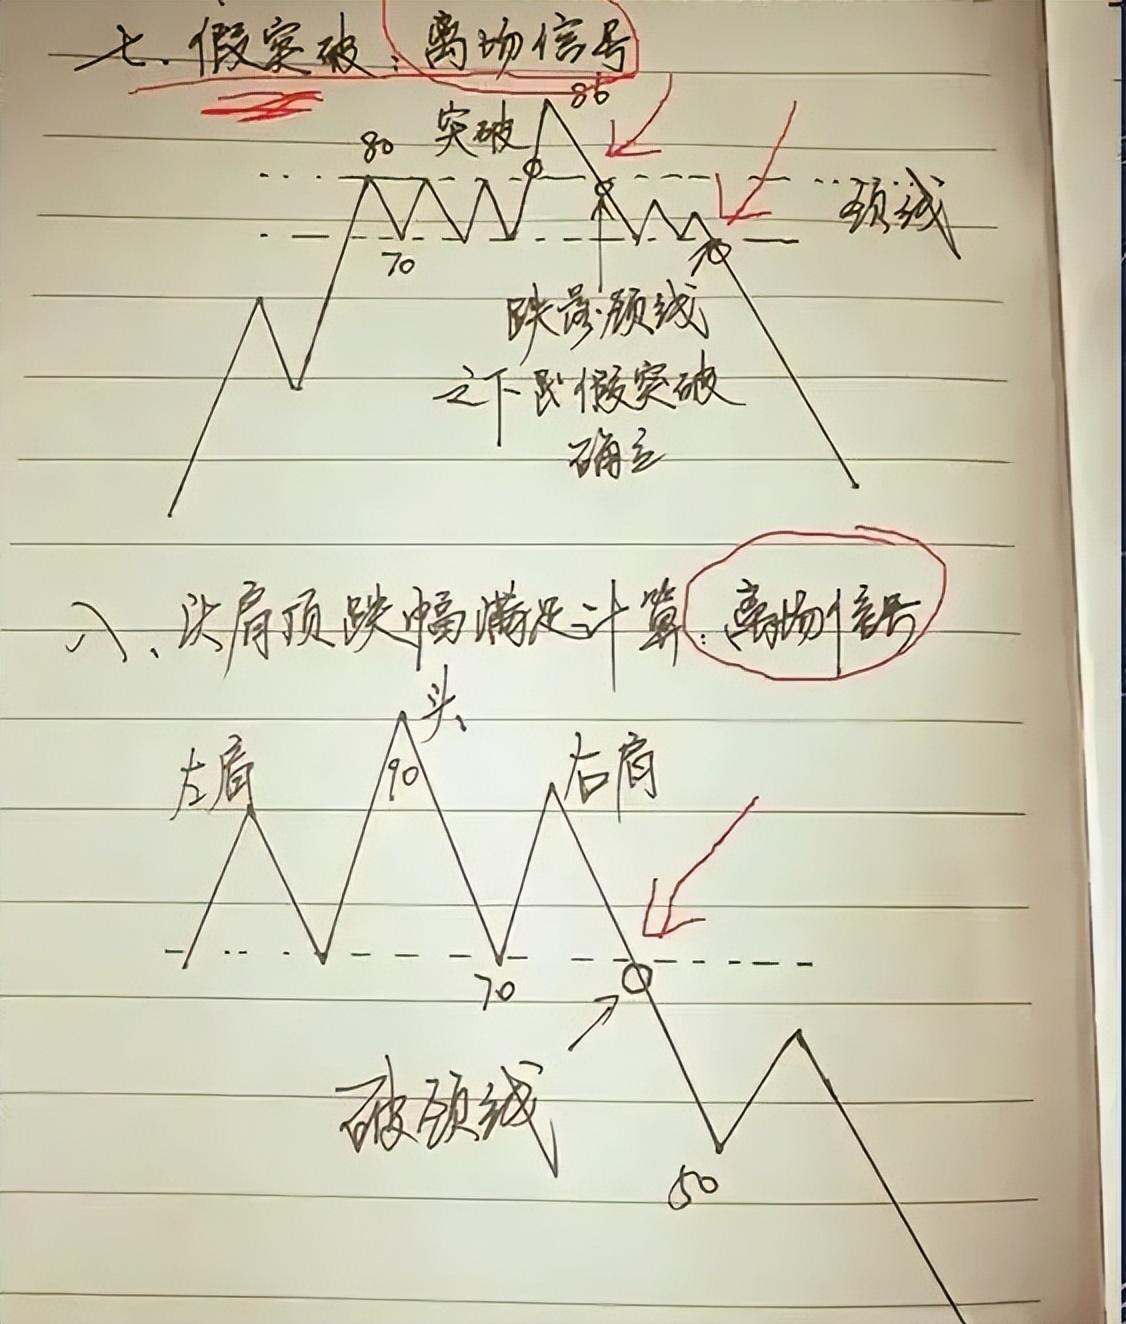 七、假突破：离场信号
86
80
突破
颈线
70
70
跌落颈线
之下即假突破
确立
八、头肩顶跌幅满足计算：离场信号
头
左肩
右肩
90
70
破颈线
50